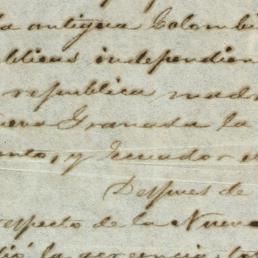 la antigua Colombi
blicas independien
republica madr
ueva Granada la
ento, y Ecuador el
Despues de
respecto de la Nueva
dió la gerencia, to